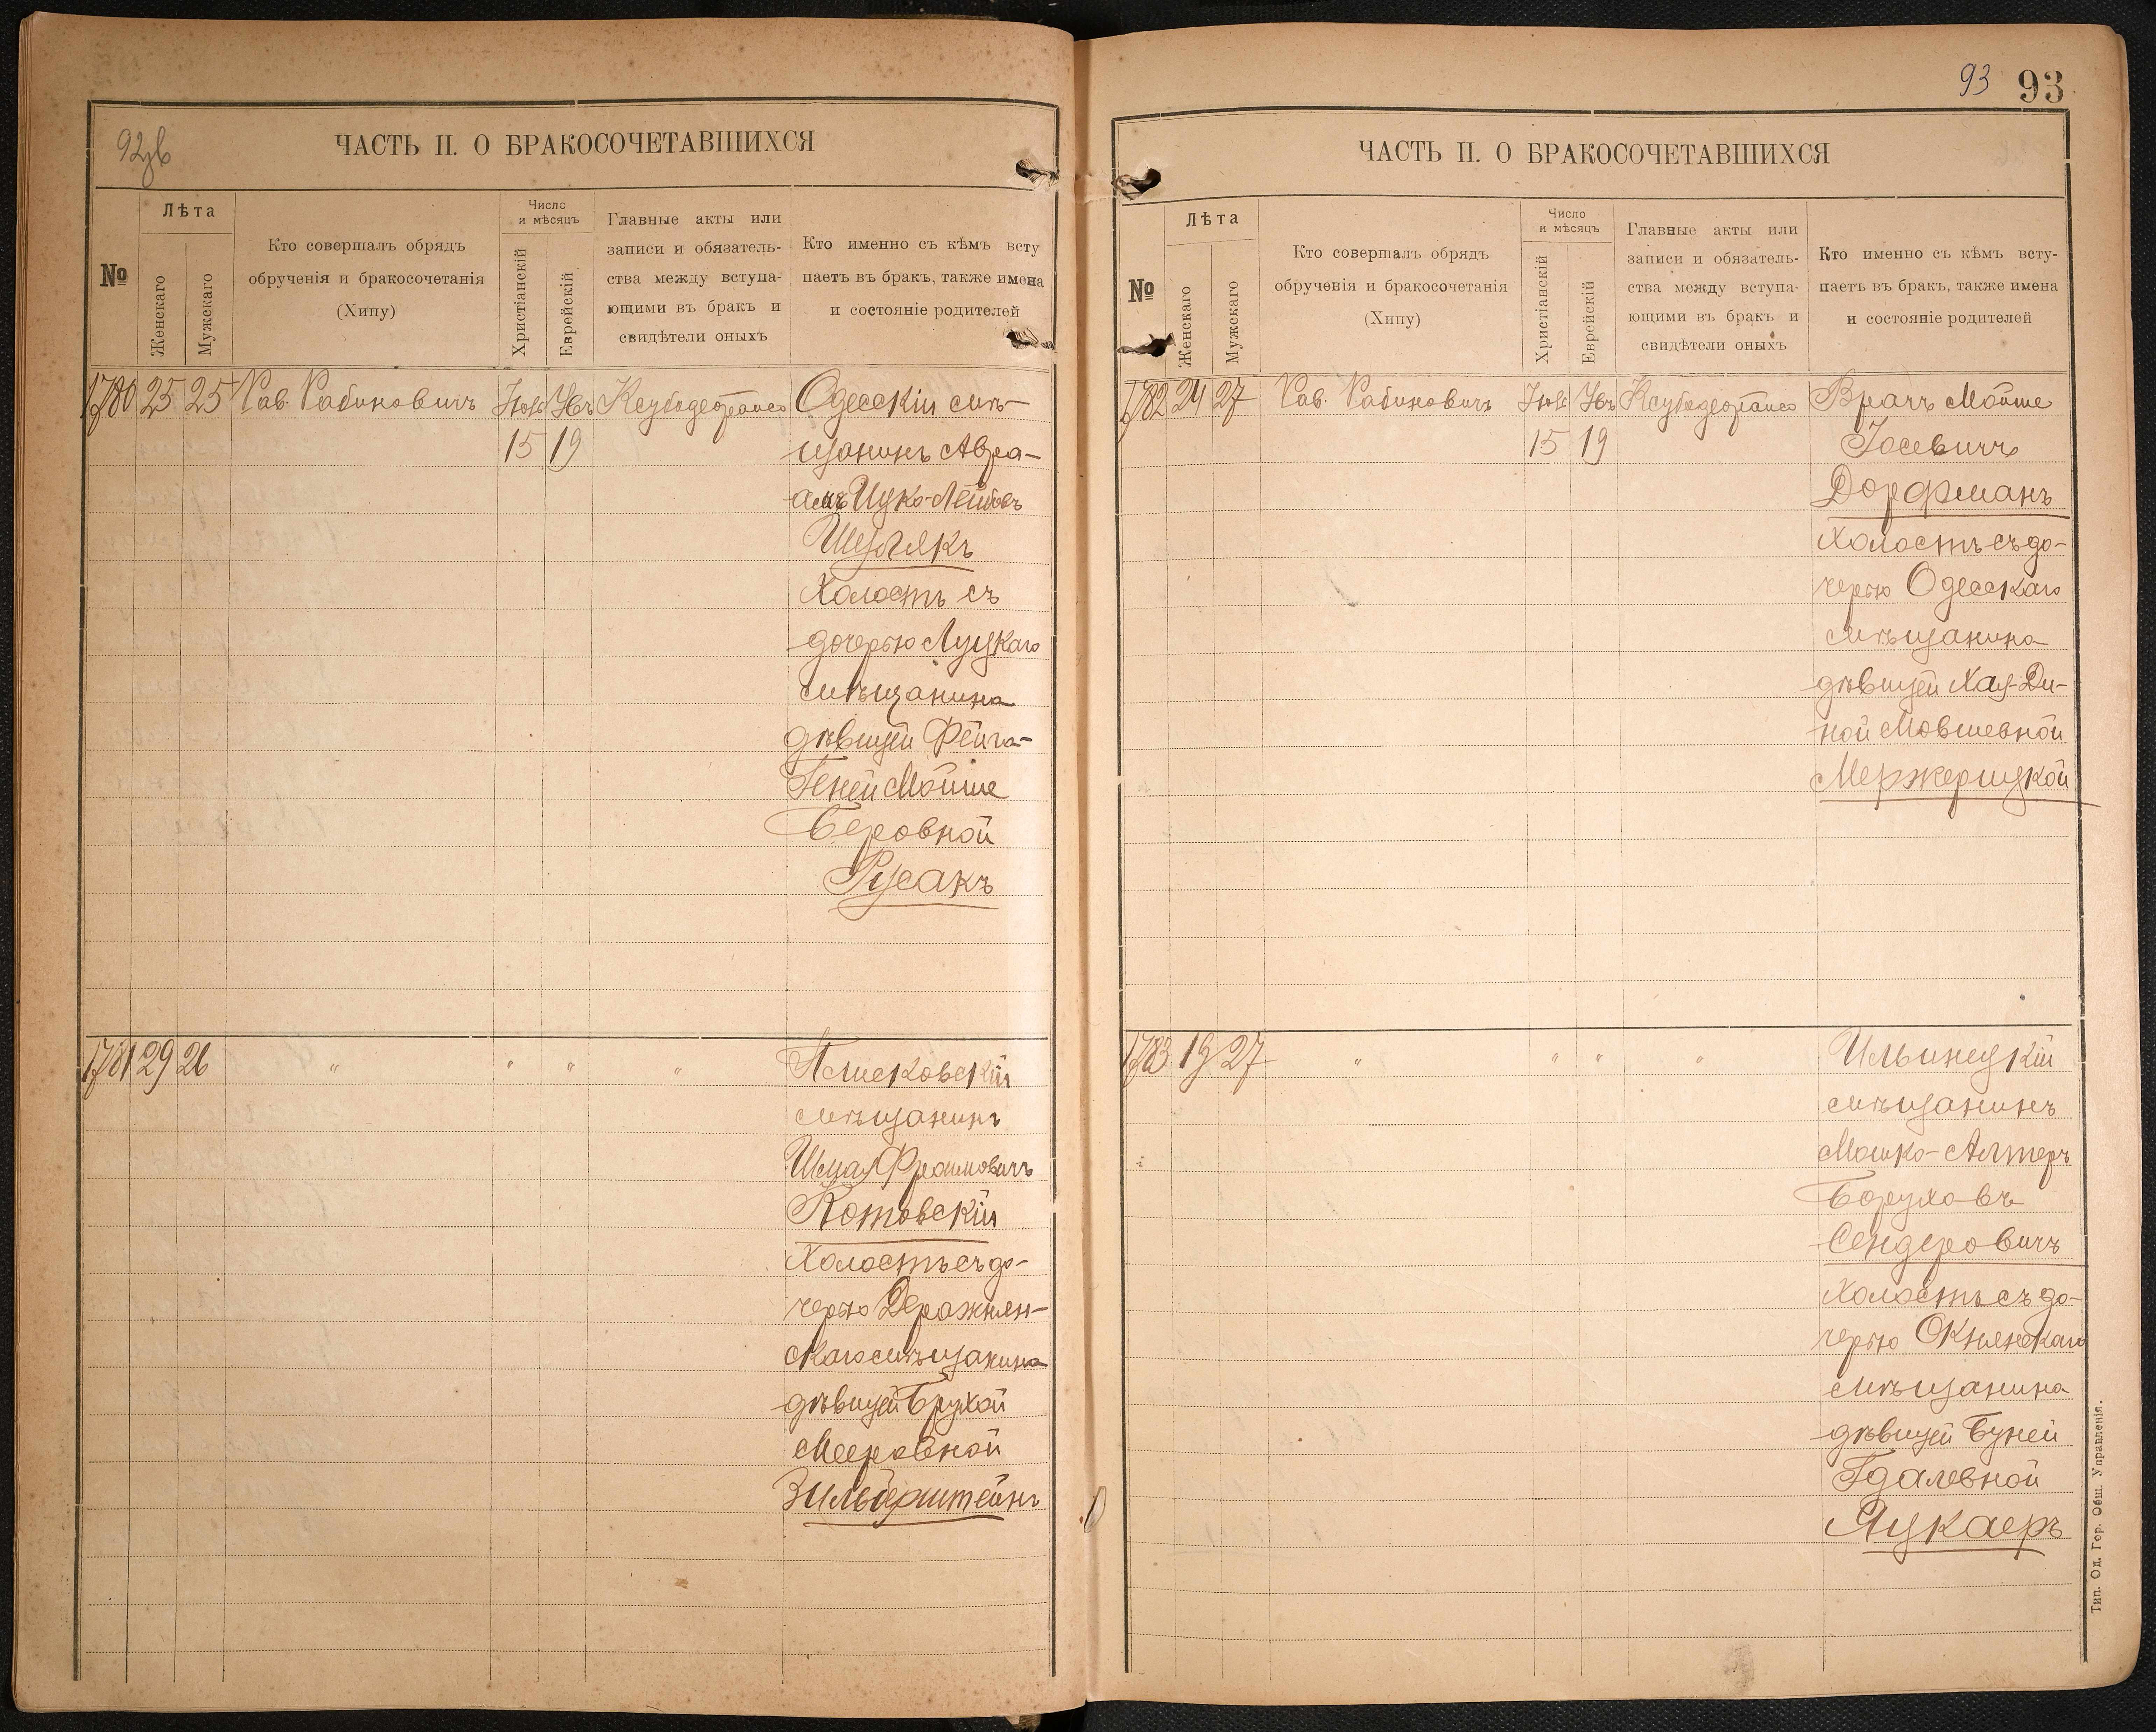 92зв
ЧАСТЬ II. О БРАКОСОЧЕТАВШИХСЯ
№
Лѣта
Женскаго
Мужскаго
Кто совершалъ обрядъ
обрученія и бракосочетанія
(Хипу)
Число
и мѣсяцъ
Христіанскій
Еврейскій
Главные акты или
записи и обязатель-
ства между вступа-
ющими въ бракъ и
свидѣтели оныхъ
Кто именно съ кѣмъ всту
паетъ въ бракъ, также имена
и состояніе родителей
1780 25 25 Рав. Рабиновичъ
15 19
Одесскій мѣ-
щанинъ Авра-
амъ Ицко-Лейбовъ
Шуглякъ
Холостъ съ
дочерью Луцкаго
мѣщанина
дѣвицей Фейга-
Геней Мойше
Беровной
Русакъ
1781 29 26 " " " "
Плисковскій
мѣщанинъ
Шмая Фроимовичъ
Котовскій
Холостъ съ до-
черью Деражнян-
скаго мѣщанина
дѣвицей Брухой
Мееровной
Зильберштейнъ
93 93
ЧАСТЬ II. О БРАКОСОЧЕТАВШИХСЯ
№
Лѣта
Женскаго
Мужскаго
Кто совершалъ обрядъ
обрученія и бракосочетанія
(Хипу)
Число
и мѣсяцъ
Христіанскій
Еврейскій
Главные акты или
записи и обязатель-
ства между вступа-
ющими въ бракъ и
свидѣтели оныхъ
Кто именно съ кѣмъ всту-
паетъ въ бракъ, также имена
и состояніе родителей
1782 24 27 Рав. Рабиновичъ
15 19
Врачъ Мойше
Іосевичъ
Дорфманъ
Холостъ съ до-
черью Одесскаго
мѣщанина
дѣвицей Хая-Ди-
ной Мовшевной
Мержерицкой
1783 19 27 " " " "
Ильинецкій
мѣщанинъ
Мошко-Алтеръ
Боруховъ
Сендеровичъ
Холостъ съ до-
черью Окнянскаго
мѣщанина
дѣвицей Буней
Гдалевной
Лукаеръ
Тип. Од. Гор. Общ. Управленія.